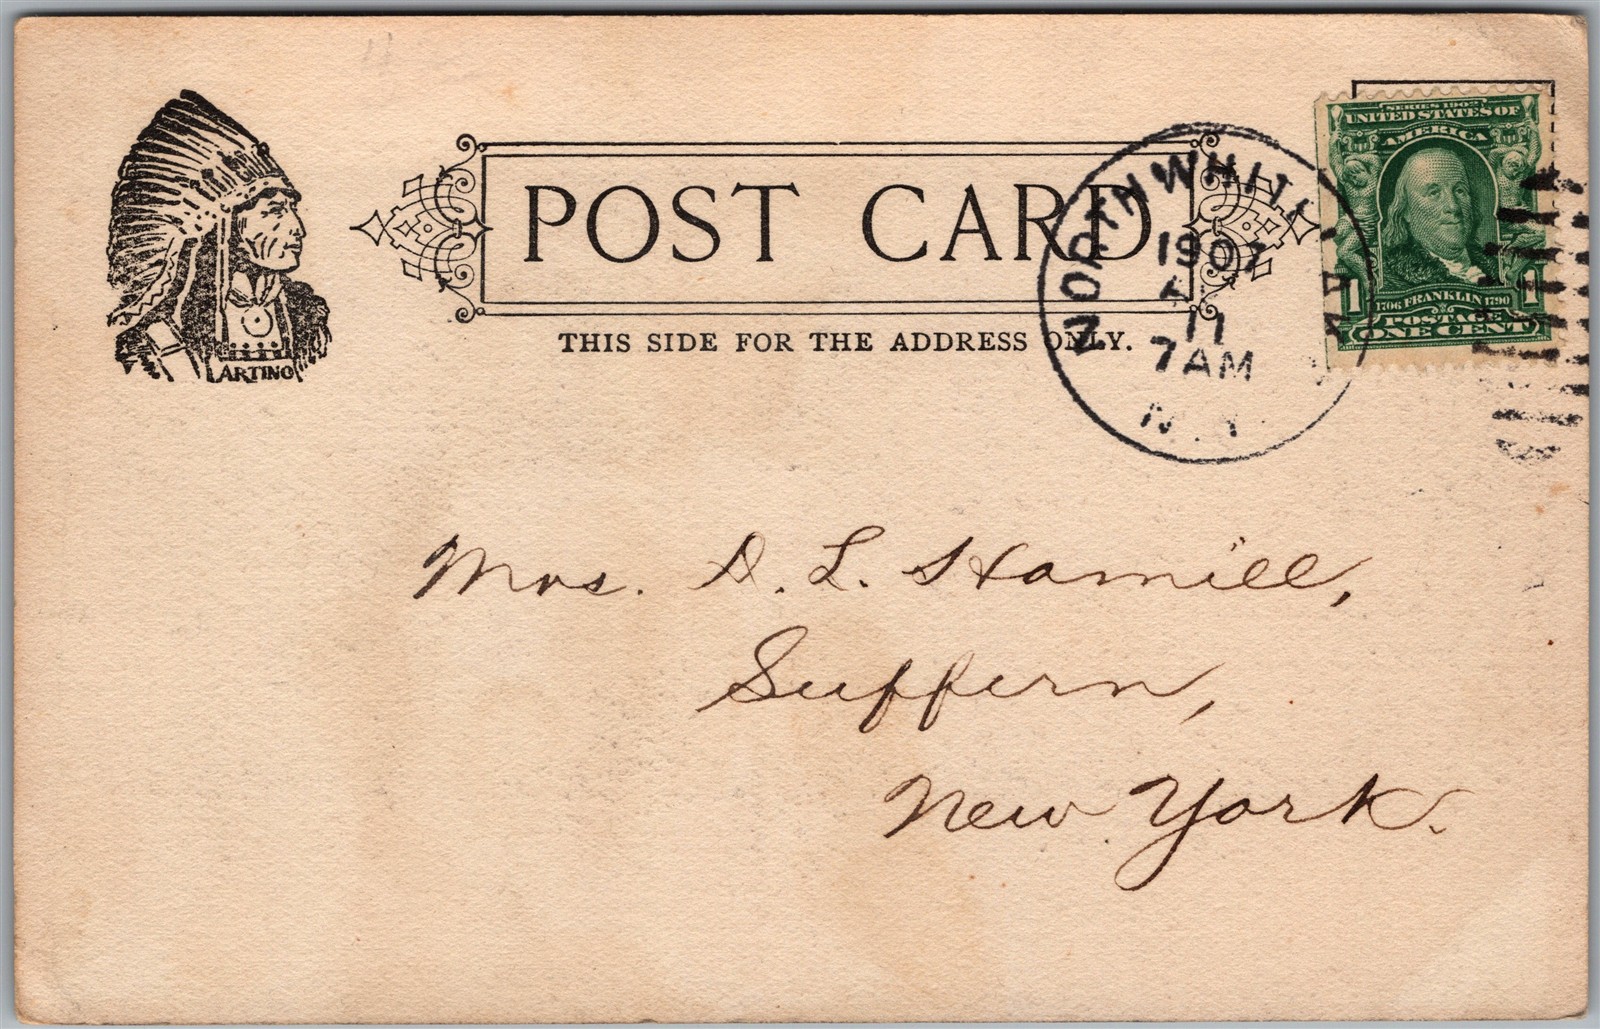 ARTINO
POST CARD
THIS SIDE FOR THE ADDRESS ONLY.
NORTH WHITE
1907
17
7 AM
N.Y.
SERIES 1902
UNITED STATES OF
AMERICA
1706 FRANKLIN 1790
1 1
POSTAGE
ONE CENT
Mrs. D. L. Hamill,
Suffern,
New York.